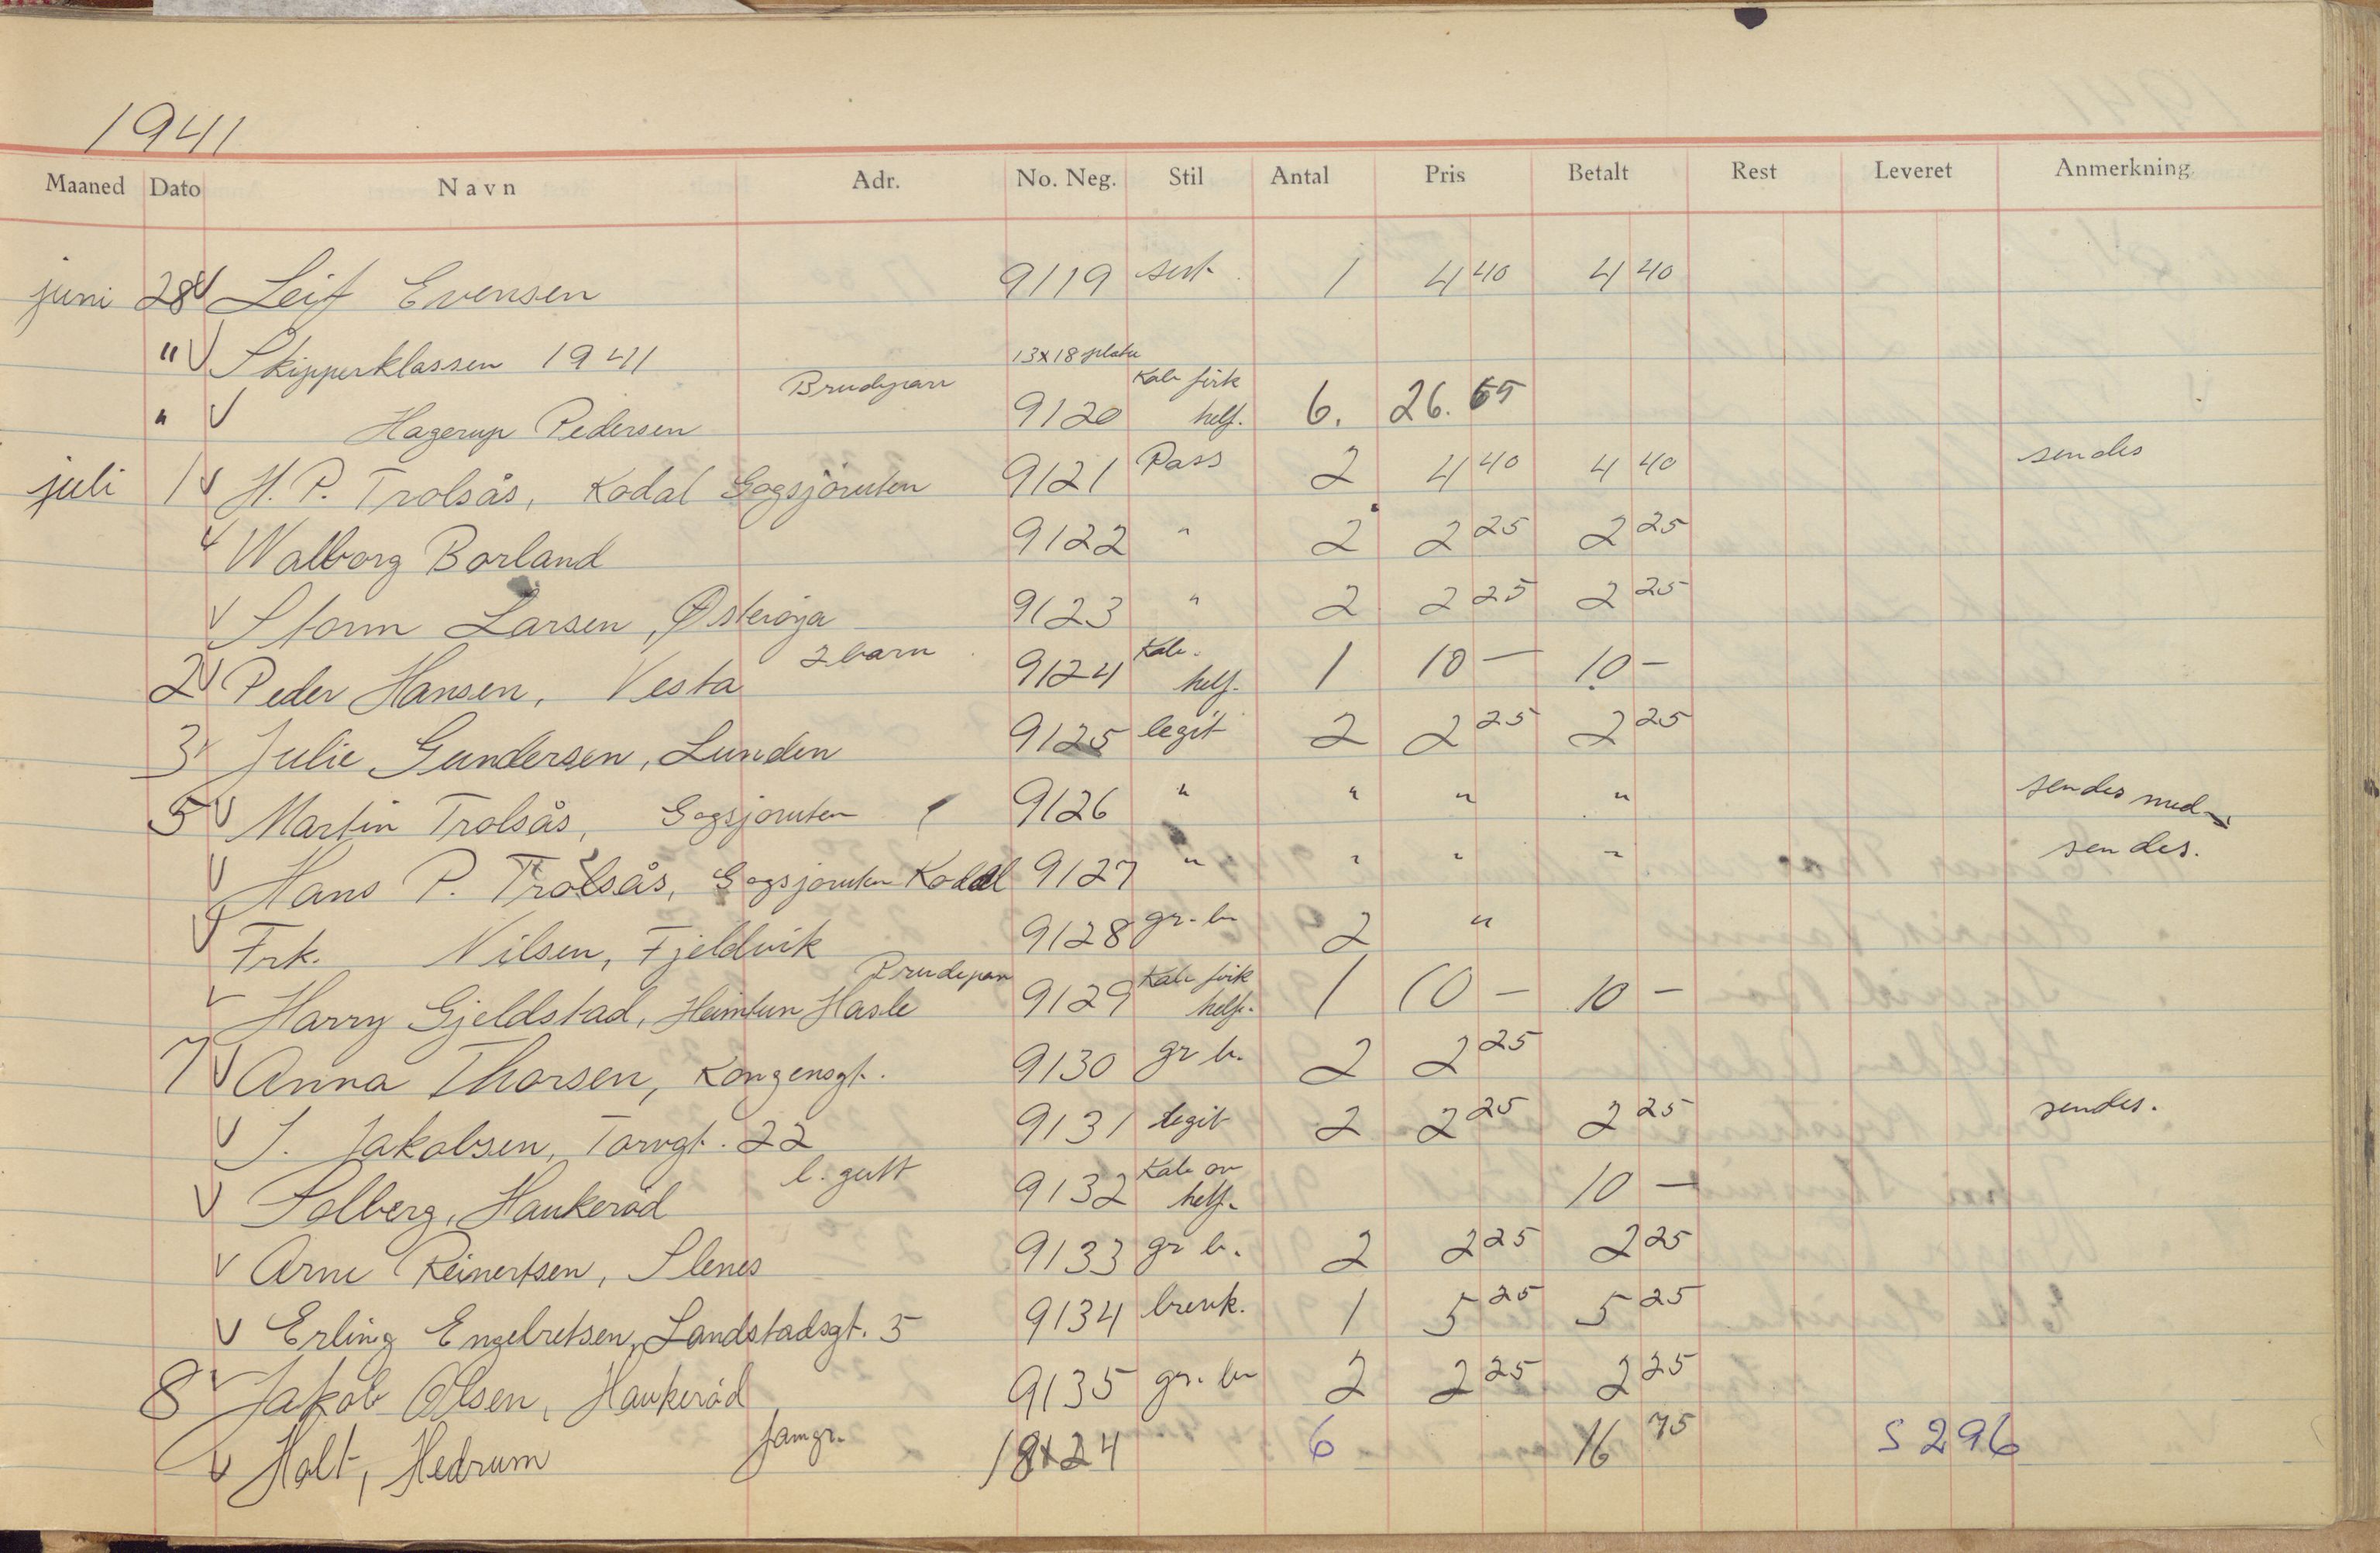 1941
Maaned Dato Navn Adr. No. Neg. Stil Antal Pris Betalt Rest Leveret Anmerkning
juni 28 V Leif Evensen 9119 1 4 40 4 40
" V Skipperklassen 1941 13x18 plate
Brudepar Kab firk
" V Hagerup Pedersen 9120 helf. 6. 26. 65
juli 1 V H. P. Trolsås, Kodal Gogsjøruten 9121 Pass 2 4 40 4 40 sendes
V Walborg Borland 9122 " 2 2 25 2 25
V Storm Larsen, Østerøya 9123 " 2 2 25 2 25
2 barn Kab.
2 V Peder Hansen, Vesta 9124 helf. 1 10 — 10 —
3 V Julie Gundersen, Lunden 9125 legit 2 2 25 2 25
5 V Martin Trolsås, Gogsjøruten 9126 " " " " sendes med
V Hans P. Trolsås, Gogsjøruten Kodal 9127 " " " " sendes.
V Frk. Nilsen, Fjeldvik 9128 gr. b 2 "
Brudepar Kab firk
V Harry Gjeldstad, Heimtun Hasle 9129 helf. 1 10 — 10 —
7 V Anna Thorsen, Kongensgt. 9130 gr b. 2 2 25
V J. Jakobsen, Torvgt. 22 9131 legit 2 2 25 2 25 sendes.
l. gutt Kab ov
V Solberg, Haukerød 9132 helf. 10 —
V Arne Reinertsen, Slenes 9133 gr b. 2 2 25 2 25
V Erling Engebretsen, Landstadsgt. 5 9134 brevk. 1 5 25 5 25
8 V Jakob Olsen, Haukerød 9135 gr. b 2 2 25 2 25
V Holt, Hedrum famgr. 18x24 6 16 75 S 296